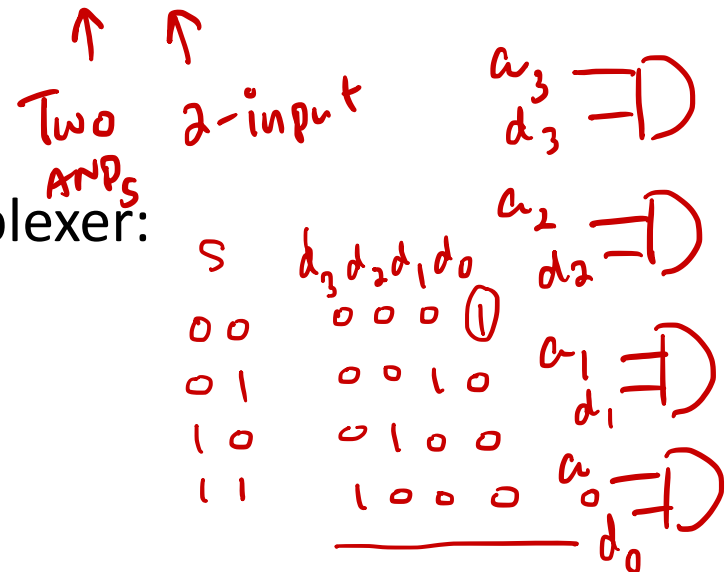 ↑ ↑
Two 2-input
ANDs
plexer:
S d3 d2 d1 d0
00 0001
01 0010
10 0100
11 1000
a3
d3
a2
d2
a1
d1
a0
d0